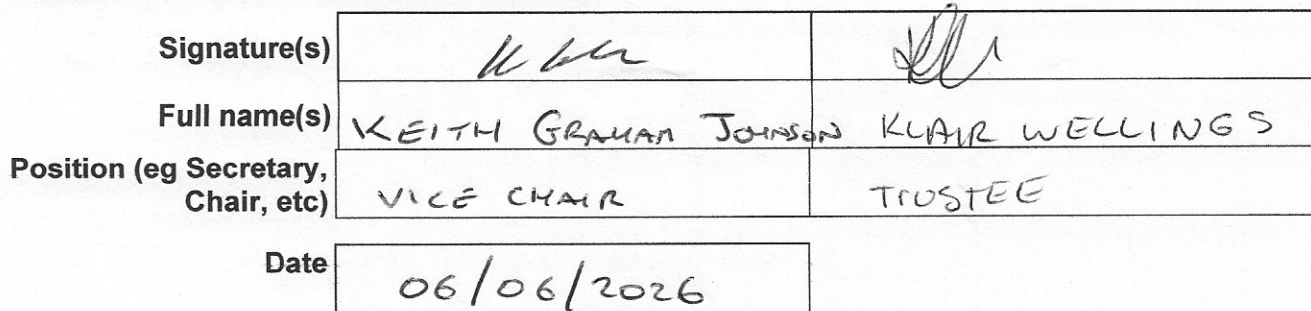 Signature(s)
Full name(s) KEITH GRAHAM JOHNSON KLAIR WELLINGS
Position (eg Secretary,
Chair, etc) VICE CHAIR TRUSTEE
Date 06/06/2026